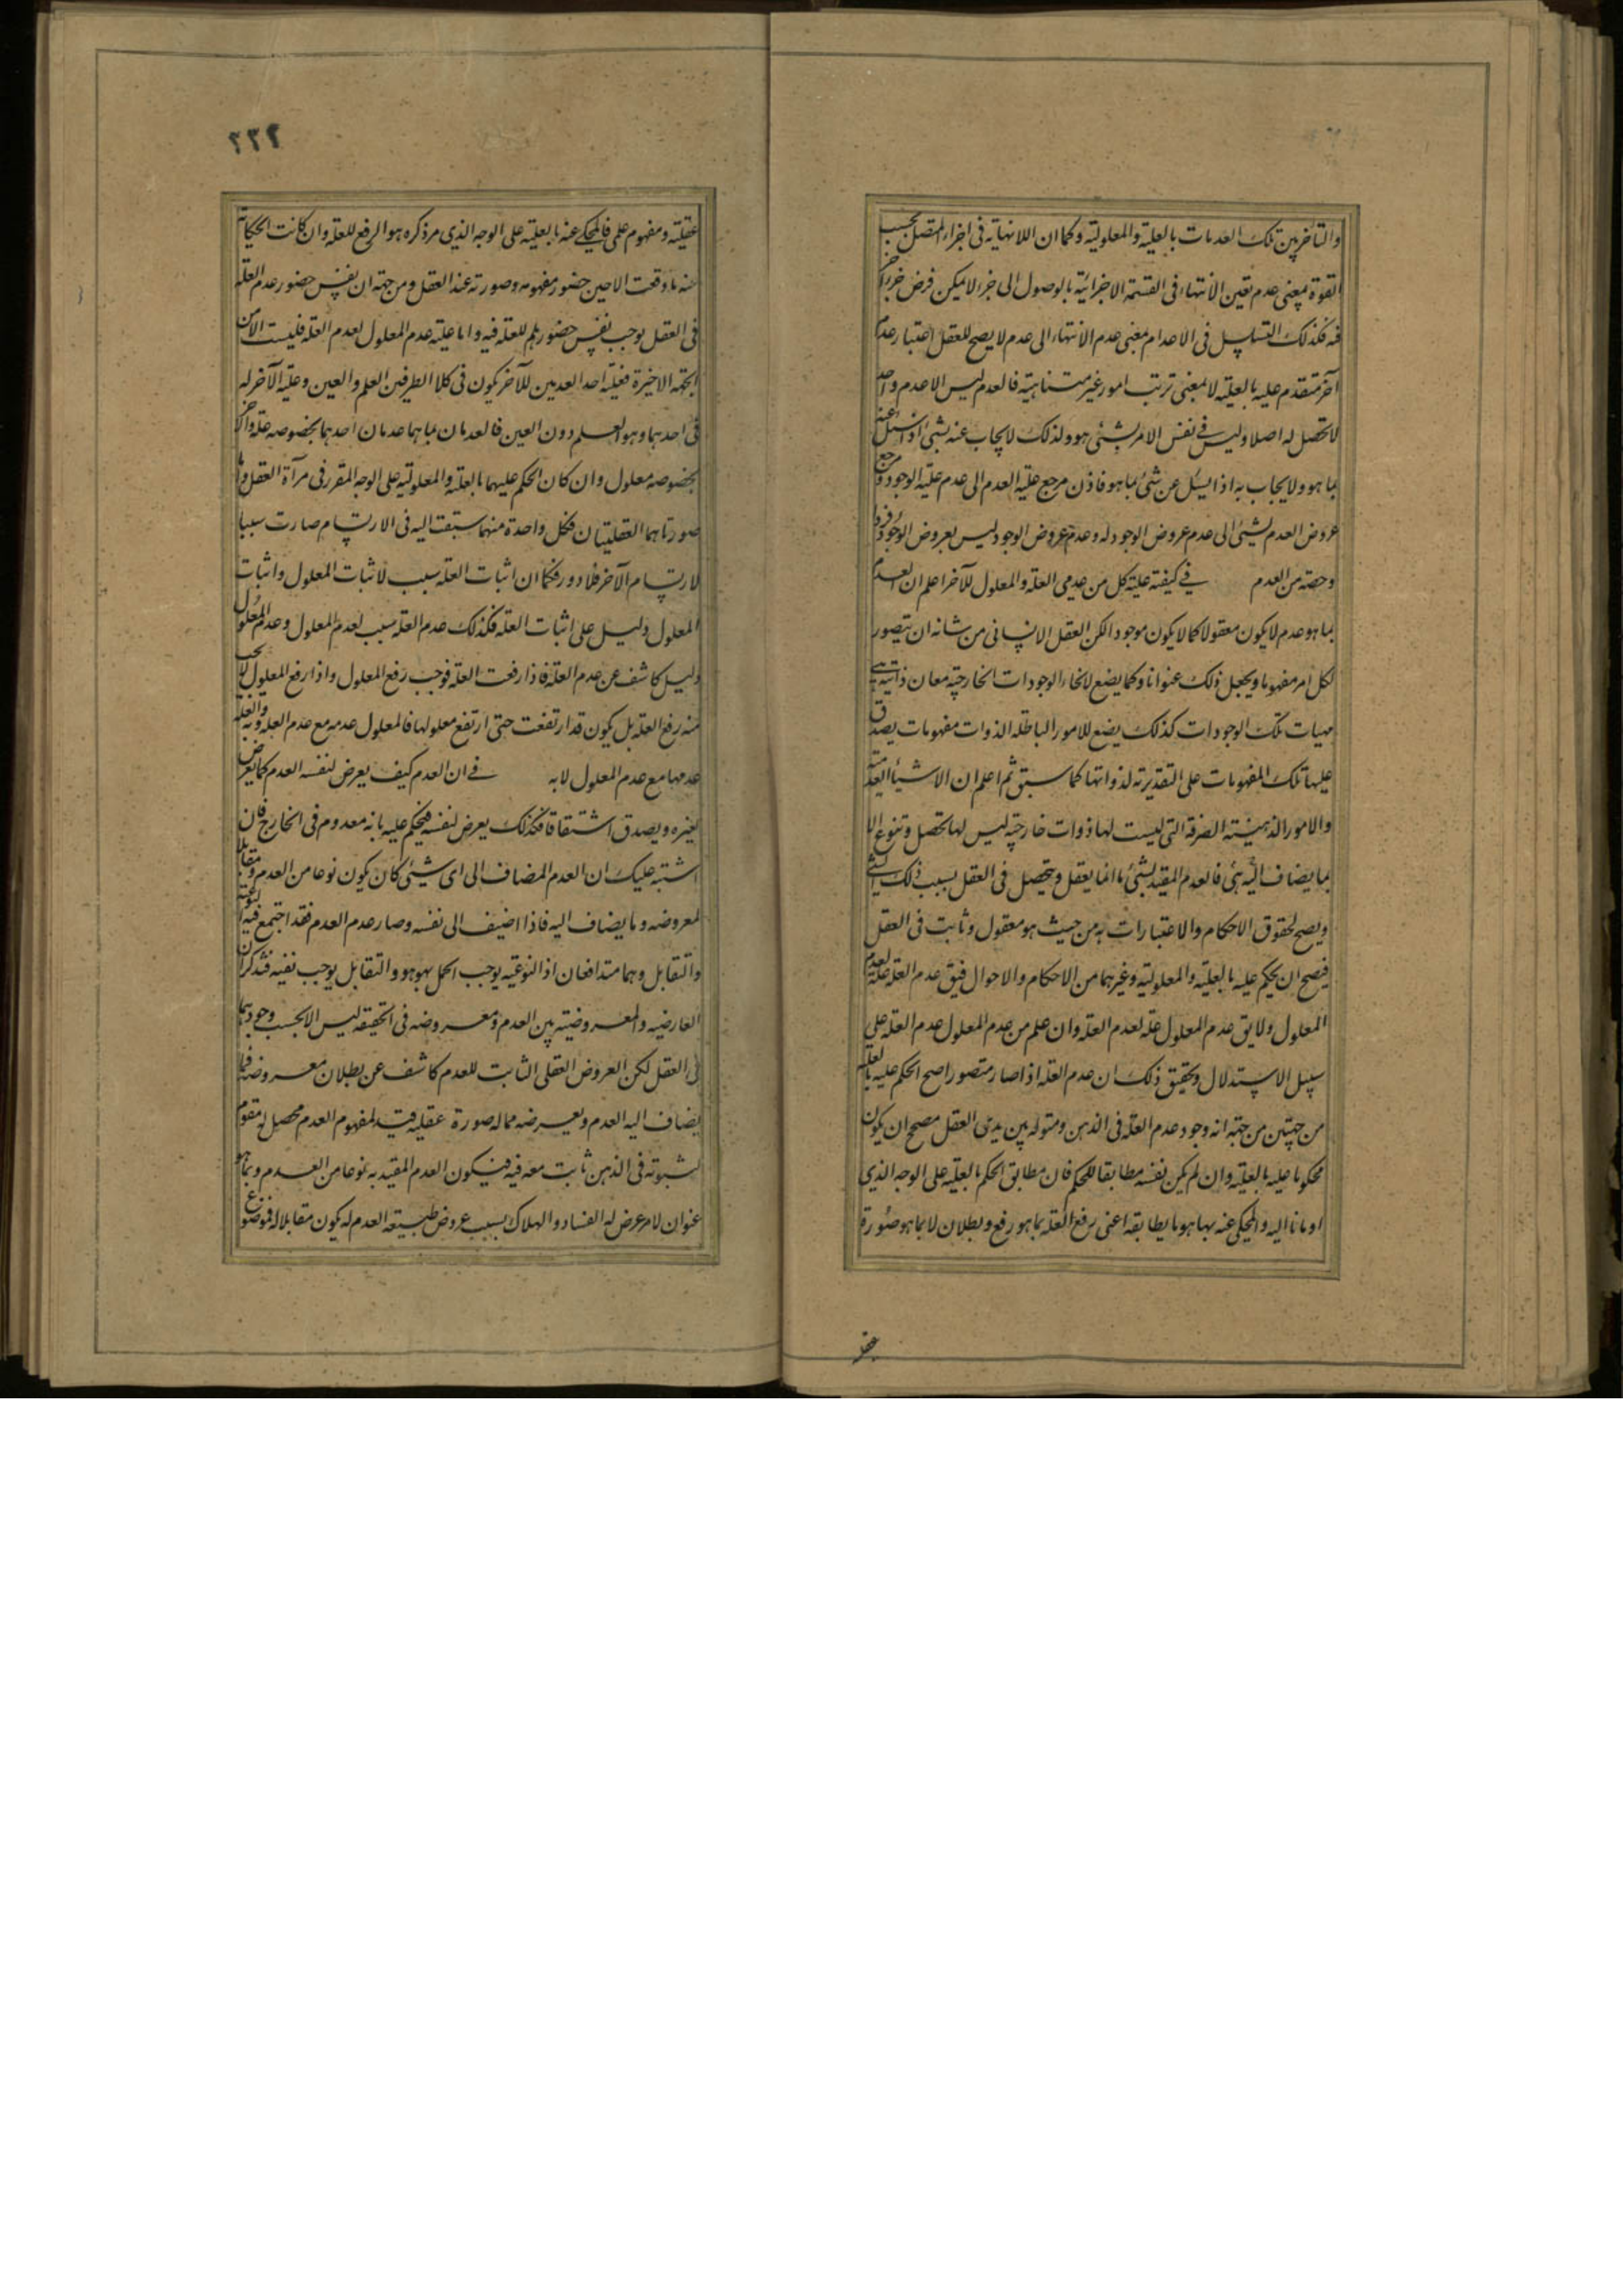 والتأخر بين تلك العدمات بالعلية والمعلولية وكما ان اللانهاية فى اجزاء المتصل بحسب
القوة بمعنى عدم تعين الانتهاء فى القسمة الاجزائية بالوصول الى جزء لا يمكن فرض جزء آخر
فيه فكذلك التسلسل فى الاعدام معنى عدم الانتهاء الى عدم لا يصح للعقل اعتبار عدم
آخر متقدم عليه بالعلية لا بمعنى ترتب امور غير متناهية فالعدم ليس الا عدم واحد
لا تحصل له اصلا وليس فى نفس الامر بشئ هو ولذلك لا يجاب عنه بشئ اذا سئل عنه
بما هو ولا يجاب به اذا سئل عن شئ بما هو فاذن مرجع علية العدم الى عدم علية الوجود ومرجع
عروض العدم لشئ الى عدم عروض الوجود له وعدم عروض الوجود ليس بعروض الوجود فردا
وحصة من العدم فى كيفية علية كل من عدمى العلة والمعلول للآخر اعلم ان العدم
بما هو عدم لا يكون معقولا كما لا يكون موجودا لكن العقل الانسانى من شانه ان يتصور
لكل امر مفهوما ويجعل ذلك عنوانا وكما يضع لانحاء الوجودات الخارجية معان ذاتية هى
مهيات تلك الوجودات كذلك يضع للامور الباطلة الذوات مفهومات يصدق
عليها تلك المفهومات على التقدير ته لذواتها كما سبق ثم اعلم ان الاشياء العدمية
والامور الذهنية الصرفة التى ليست لها ذوات خارجية ليس لها تحصل وتنوع الا
بما يضاف اليه هى فالعدم المقيد بشئ ما انما يعقل ويتحصل فى العقل بسبب ذلك الشئ
ويصح لحقوق الاحكام والاعتبارات به من حيث هو معقول وثابت فى العقل
فيصح ان يحكم عليه بالعلية والمعلولية وغيرهما من الاحكام والاحوال فيق عدم العلة علة لعدم
المعلول ولا يق عدم المعلول علة لعدم العلة وان علم من عدم المعلول عدم العلة على
سبيل الاستدلال وتحقيق ذلك ان عدم العلة اذا صار متصورا صح الحكم عليه بالعلة
من جهتين من جهة انه وجود عدم العلة فى الذهن ومثوله بين يدى العقل مصحح ان يكون
محكوما عليه بالعلية وان لم يكن نفسه مطابقا للحكم فان مطابق الحكم بالعلية على الوجه الذى
اومانا اليه والمحكى عنه بها هو ما يطابقه اعنى رفع العلة بما هو رفع وبطلان لا بما هو صورة
عقلية
٢٣٢
عقلية ومفهوم علمى فالمحكى عنه بالعلية على الوجه الذى مر ذكره هو الرفع للعلة وان كانت الحكاية
عنه ما وقعت الا حين حضور مفهومه وصورته عند العقل ومن جهة ان نفس حضور عدم العلة
فى العقل يوجب نفس حضور عدم للعلة فيه واما علية عدم المعلول لعدم العلة فليست الا من
الجهة الاخيرة فعلية احد العدمين للآخر يكون فى كلا الطرفين العلم والعين وعلية الآخر له
فى احدهما وهو العلم دون العين فالعدمان بما هما عدمان احدهما بخصوصه علة والآخر
بخصوصه معلول وان كان الحكم عليهما بالعلية والمعلولية على الوجه المقرر فى مرآة العقل واما
صورتاهما العقليتان فكل واحدة منهما سبقت اليه فى الارتسام صارت سببا
لارتسام الآخر فلا دور فكما ان اثبات العلة سبب لاثبات المعلول واثبات
المعلول دليل على اثبات العلة فكذلك عدم العلة سبب لعدم المعلول وعدم المعلول
دليل كاشف عن عدم العلة فاذا رفعت العلة فوجب رفع المعلول واذا رفع المعلول لا يجب
منه رفع العلة بل يكون قد ارتفعت حتى ارتفع معلولها فالمعلول عدمه مع عدم العلة وبه والعلة
عدمها مع عدم المعلول لا به فى ان العدم كيف يعرض لنفسه العدم كما يعرض
لغيره ويصدق اشتقاقا فكذلك يعرض لنفسه فيحكم عليه بانه معدوم فى الخارج فان
اشتبه عليك ان العدم المضاف الى اى شئ كان يكون نوعا من العدم ومقابلا
لمعروضه وما يضاف اليه فاذا اضيف الى نفسه وصار عدم العدم فقد اجتمع فيه النوعية
والتقابل وهما متدافعان اذ النوعية يوجب الحمل بهو هو والتقابل يوجب نفيه فتذكر ان
العارضية والمعروضية بين العدم ومعروضه فى الحقيقة ليس الا بحسب وجودهما
فى العقل لكن العروض العقلى الثابت للعدم كاشف عن بطلان معروضه فما
يضاف اليه العدم ويعرضه مما له صورة عقلية قيد لمفهوم العدم محصل له مقوم
لثبوته فى الذهن ثابت معه فيه فيكون العدم المقيد به نوعا من العدم وبما هو
عنوان لامر عرض له الفساد والهلاك بسبب عروض طبيعة العدم له يكون مقابلا له فموضوع